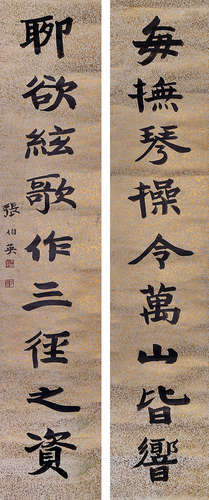 每撫琴操令萬山皆響
聊欲絃歌作三徑之資
張伯英